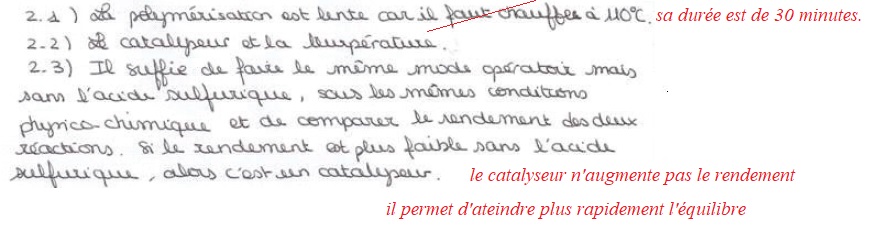 2.1) La polymérisation est lente car il faut chauffer à 110°C. sa durée est de 30 minutes.
2.2) Le catalyseur et la température.
2.3) Il suffie de faire le même mode opératoir mais
sans l'acide sulfurique, sous les mêmes conditions
physico-chimique et de comparer le rendement des deux
réactions. Si le rendement est plus faible sans l'acide
sulfurique, alors c'est un catalyseur. le catalyseur n'augmente pas le rendement
il permet d'ateindre plus rapidement l'équilibre